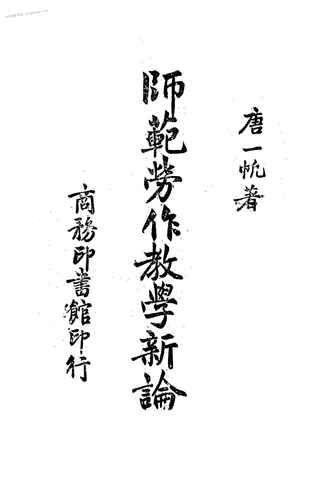 唐一帆著
師範勞作教學新論
商務印書館印行